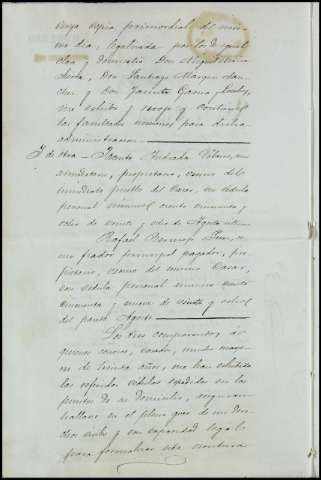 cuya copia primordial del mismo
mo dia, legalizada por los de igual
clase y domicilio Don Miguel
Don Santiago Marquez San
chez y Don Jacinto Garcia
me exhibe y recojo y contiene
las facultades necesarias para dicha
administracion.
Y de otra = Vicente Andrada
casado, propietario, vecino del
inmediato pueblo del Casar, su cedula
personal numero ciento cincuenta y
ocho de veinte y ocho de Agosto ultimo
Rafael Bermejo
como fiador principal pagador, pro
pietario, vecino del mismo Casar,
con cedula personal numero ciento
cincuenta y nueve de veinte y ocho
del pasado Agosto
Los tres comparecientes, á
quienes conozco, casados, mucho mayo
res de treinta años, me han exhibido
las referidas cedulas espedidas en los
puntos de su domicilio, aseguran
hallarse en el pleno goce de sus dere
chos civiles y con capacidad legal
para formalizar esta escritura